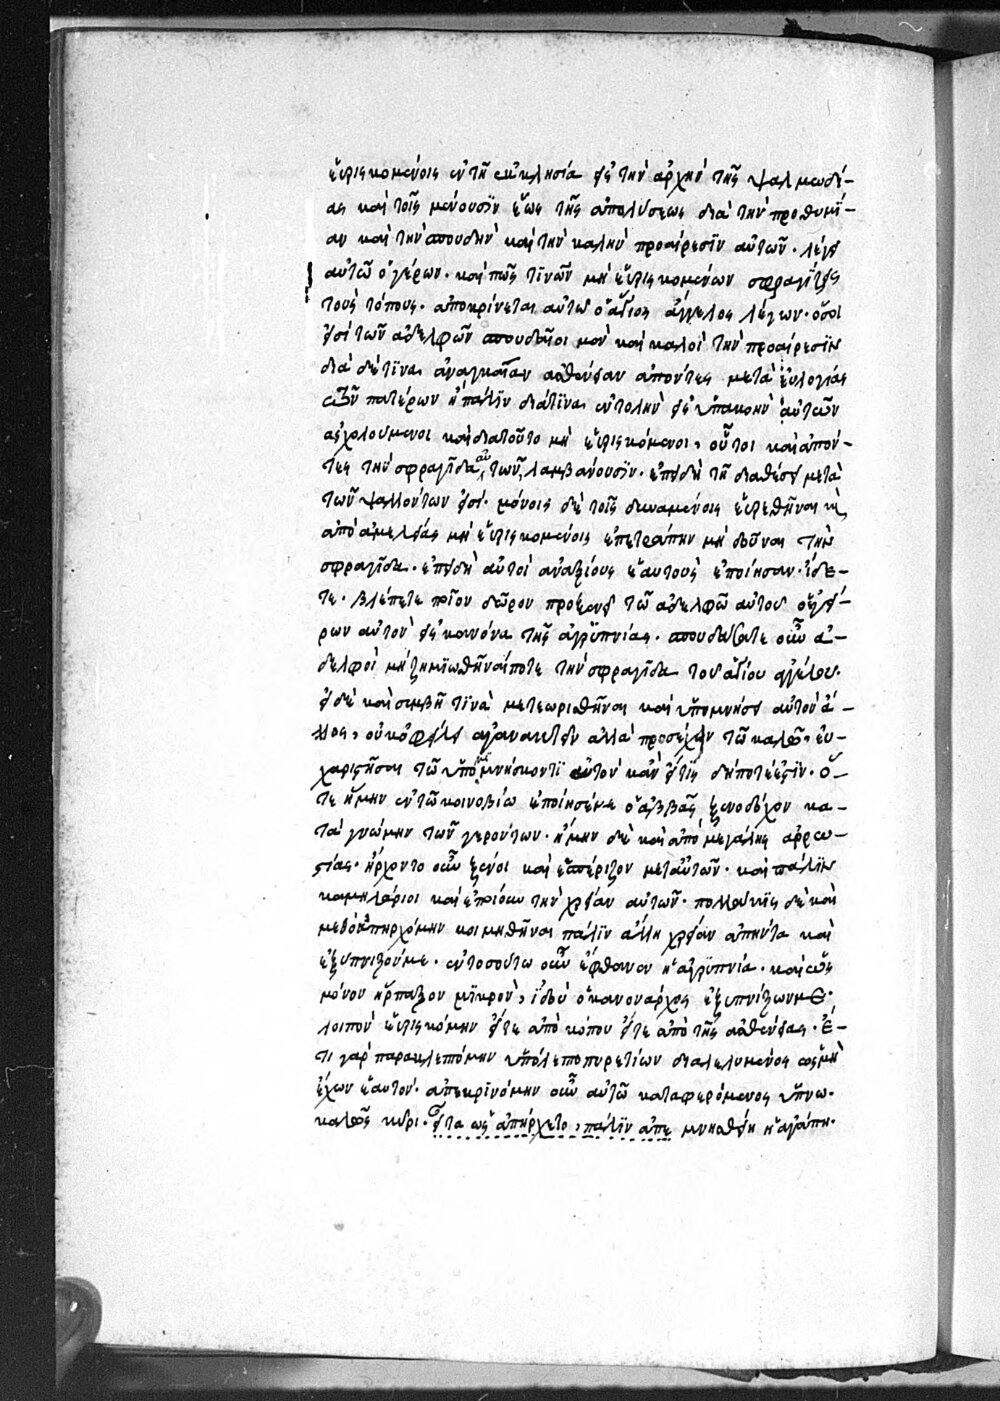 εὑρισκομένοις ἐν τῆ ἐκκλησία εἰς τὴν ἀρχὴν τῆς ψαλμωδί-
ας καὶ τοῖς μένουσϊν ἕως τῆς ἀπολύσεως διὰ τὴν προθυμΐ-
αν καὶ τὴν σπουδὴν καὶ τὴν καλὴν προαίρεσϊν αὐτῶν· λέγει
αὐτῶ ὁ γέρων· καὶ πῶς τϊνῶν μὴ εὑρισκομένων σφραγίζεις
τοὺς τόπους· ἀποκρίνεται αὐτῶ ὁ ἅγιος ἄγγελος λέγων· ὅσοι
εἰσὶ τῶν ἀδελφῶν σπουδαῖοι μὲν καὶ καλοὶ τὴν προαίρεσϊν
διὰ δέ τϊνα ἀναγκαίαν ἀσθένειαν ἀπόντες μετὰ εὐλογίας
τῶν πατέρων ἢ πάλϊν διά τϊνα ἐντολὴν εἰς ὑπακοὴν αὐτῶν
ἀσχολούμενοι καὶ διατοῦτο μὴ εὑρισκόμενοι, οὗτοι καὶ ἀπόν-
τες τὴν σφραγῖδα αὐτῶν λαμβάνουσϊν· ἐπειδὴ τῆ διαθέσει μετὰ
τῶν ψαλλόντων εἰσί· μόνοις δὲ τοῖς δυναμένοις εὑρεθῆναι καὶ
ἀπὸ ἀμελείας μὴ εὑρισκομένοις ἐπετράπην μὴ δοῦναι τὴν
σφραγῖδα· ἐπειδὴ αὐτοὶ ἀναξίους ἑαυτοὺς ἐποίησαν· ἴδε-
τε· βλέπετε ποῖον δῶρον προξενεῖ τῶ ἀδελφῶ αὐτοῦ ὁ ἐγεί-
ρων αὐτὸν εἰς κανόνα τῆς ἀγρϋπνίας· σπουδάσατε οὖν ἀ-
δελφοὶ μὴ ζημϊωθῆναί ποτε τὴν σφραγῖδα τοῦ ἁγίου ἀγγέλου·
εἰ δὲ καὶ συμβῆ τϊνὰ μετεωρισθῆναι καὶ ὑπομνήσει αὐτὸν ἄ-
λλος, οὐκ ὀφείλει ἀγανακτεῖν ἀλλὰ προσέχειν τῶ καλῶ, εὐ-
χαριστῆσαι τῶ ὑπομιμνήσκοντϊ αὐτὸν κἂν εἴτϊς δήποτέ ἐστϊν· ὅ-
τε ἤμην ἐν τῶ κοινοβίω ἐποίησέ με ὁ ἀββᾶς ξενοδόχον κα-
τὰ γνώμην τῶν γερόντων· ἤμην δὲ καὶ ἀπὸ μεγάλης ἀρρω-
στίας· ἤρχοντο οὖν ξένοι καὶ ἑσπέριζον μετ αὐτῶν· καὶ πάλϊν
καμηλάριοι καὶ ἐποίουν τὴν χρείαν αὐτῶν· πολλάκϊς δὲ καὶ
μεθὸ ὑπηρχόμην κοιμηθῆναι πάλϊν ἄλλη χρεία ἀπήντα καὶ
ἐξυπνίζουν με· ἐν τοσούτω οὖν ἔφθανεν ἡ ἀγρϋπνία· καὶ ὡς
μόνον ἥρπαζον μϊκρόν, ἰδοὺ ὁ κανονάρχος ἐξυπνίζων με·
λοιπὸν εὑρισκόμην εἴτε ἀπὸ κόπου εἴτε ἀπὸ τῆς ἀσθενείας· ἔ-
τι γὰρ παρεκλεπτόμην ὑπὸ λεπτοπυρετίων διαλελυμένος ὡς μὴ
ἔχων ἑαυτόν· ἀπεκρϊνόμην οὖν αὐτῶ καταφερόμενος ὕπνω·
καλῶς κύρι· εἶτα ὡς ἀπήρχετο, πάλϊν ἀπε μνησθείη ἡ ἀγάπη·